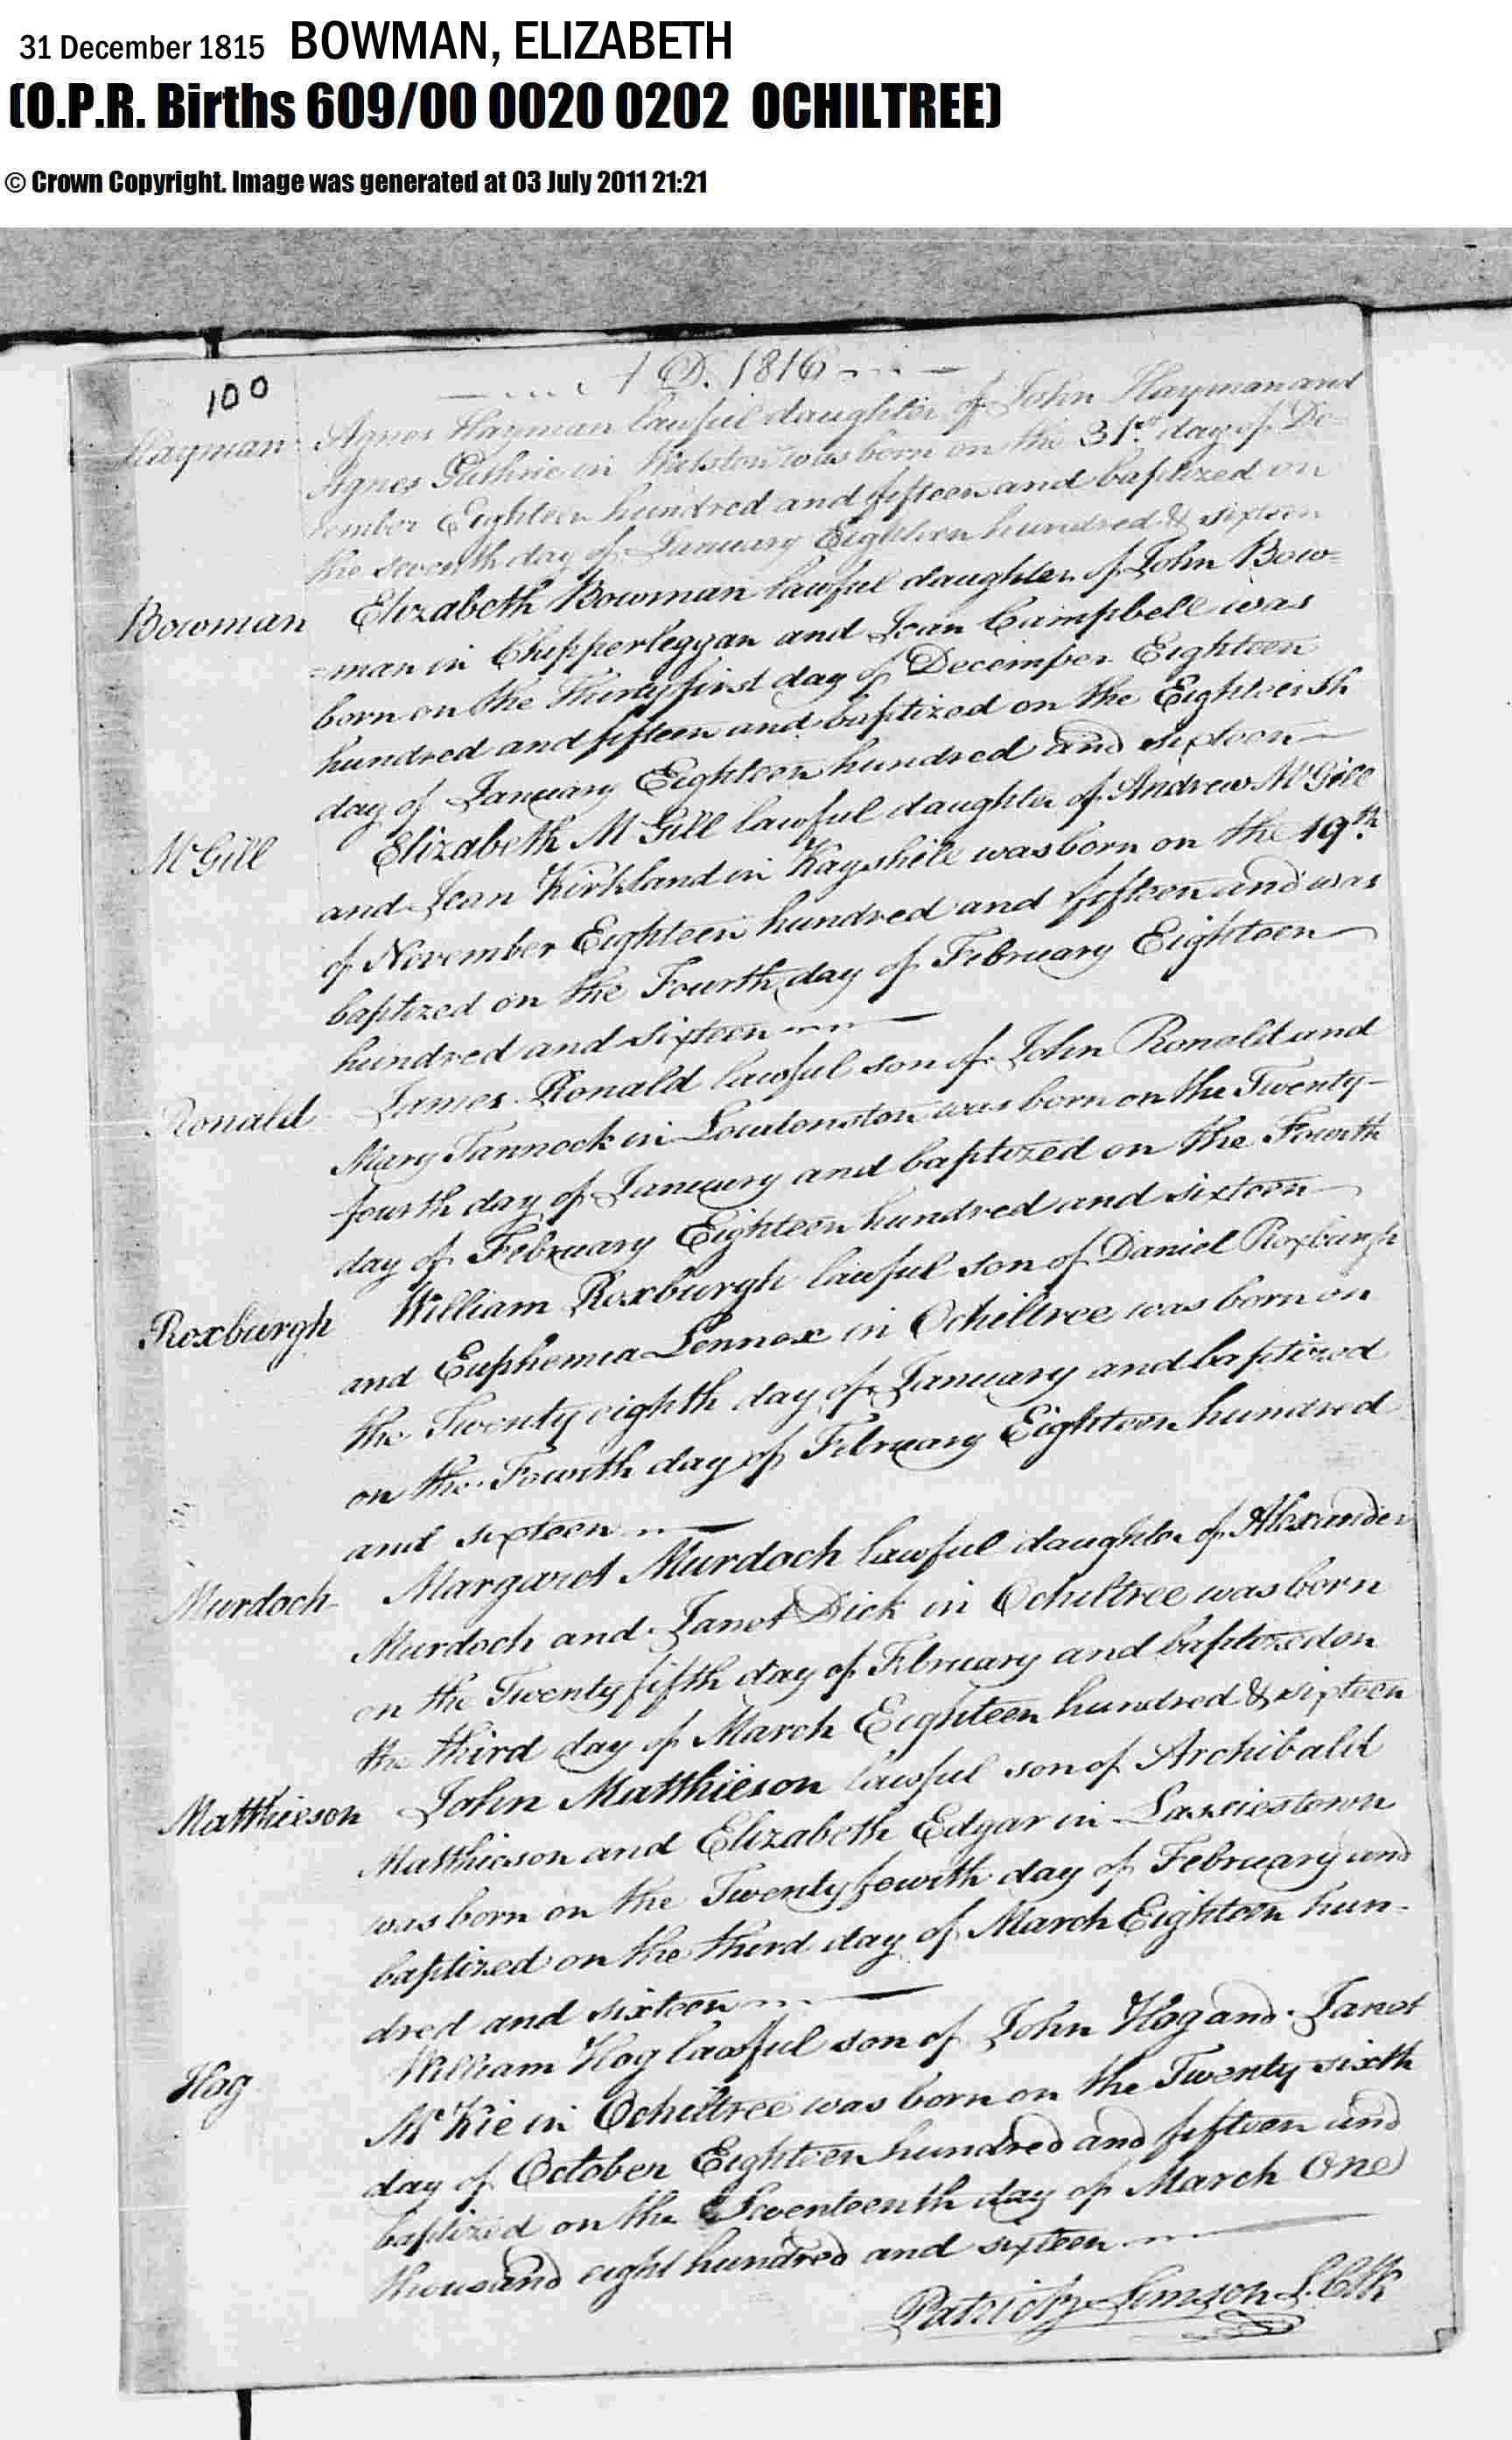 31 December 1815 BOWMAN, ELIZABETH
(O.P.R. Births 609/00 0020 0202 OCHILTREE)
© Crown Copyright. Image was generated at 03 July 2011 21:21
100
A D. 1816
Hayman Agnes Hayman lawful daughter of John Hayman and
Agnes Guthrie in was born on the 31st day of De-
cember Eighteen hundred and fifteen and baptized on
the seventh day of January Eighteen hundred & sixteen
Bowman Elizabeth Bowman lawful daughter of John Bow=
=man in Chipperlegyan and Jean Campbell was
born on the Thirty first day of December Eighteen
hundred and fifteen and baptized on the Eighteenth
day of January Eighteen hundred and sixteen
McGill Elizabeth McGill lawful daughter of Andrew McGill
and Jean Kirkland in Hagshill was born on the 19th
of November Eighteen hundred and fifteen and was
baptized on the Fourth day of February Eighteen
hundred and sixteen
Ronald James Ronald lawful son of John Ronald and
Mary Tannock in Loudenston was born on the Twenty-
fourth day of January and baptized on the Fourth
day of February Eighteen hundred and sixteen
Roxburgh William Roxburgh lawful son of Daniel Roxburgh
and Euphemia Lennox in Ochiltree was born on
the Twenty eighth day of January and baptized
on the Fourth day of February Eighteen hundred
and sixteen
Murdoch Margaret Murdoch lawful daughter of Alexander
Murdoch and Janet Dick in Ochiltree was born
on the Twenty fifth day of February and baptized on
the third day of March Eighteen hundred & sixteen
Matthieson John Matthieson lawful son of Archibald
Matthieson and Elizabeth Edgar in Lassiestown
was born on the Twenty fourth day of February and
baptized on the third day of March Eighteen hun-
dred and sixteen
Hog William Hog lawful son of John Hog and Janet
McKie in Ochiltree was born on the Twenty sixth
day of October Eighteen hundred and fifteen and
baptized on the Seventeenth day of March One
thousand eight hundred and sixteen
Patrick Simson S. Clk